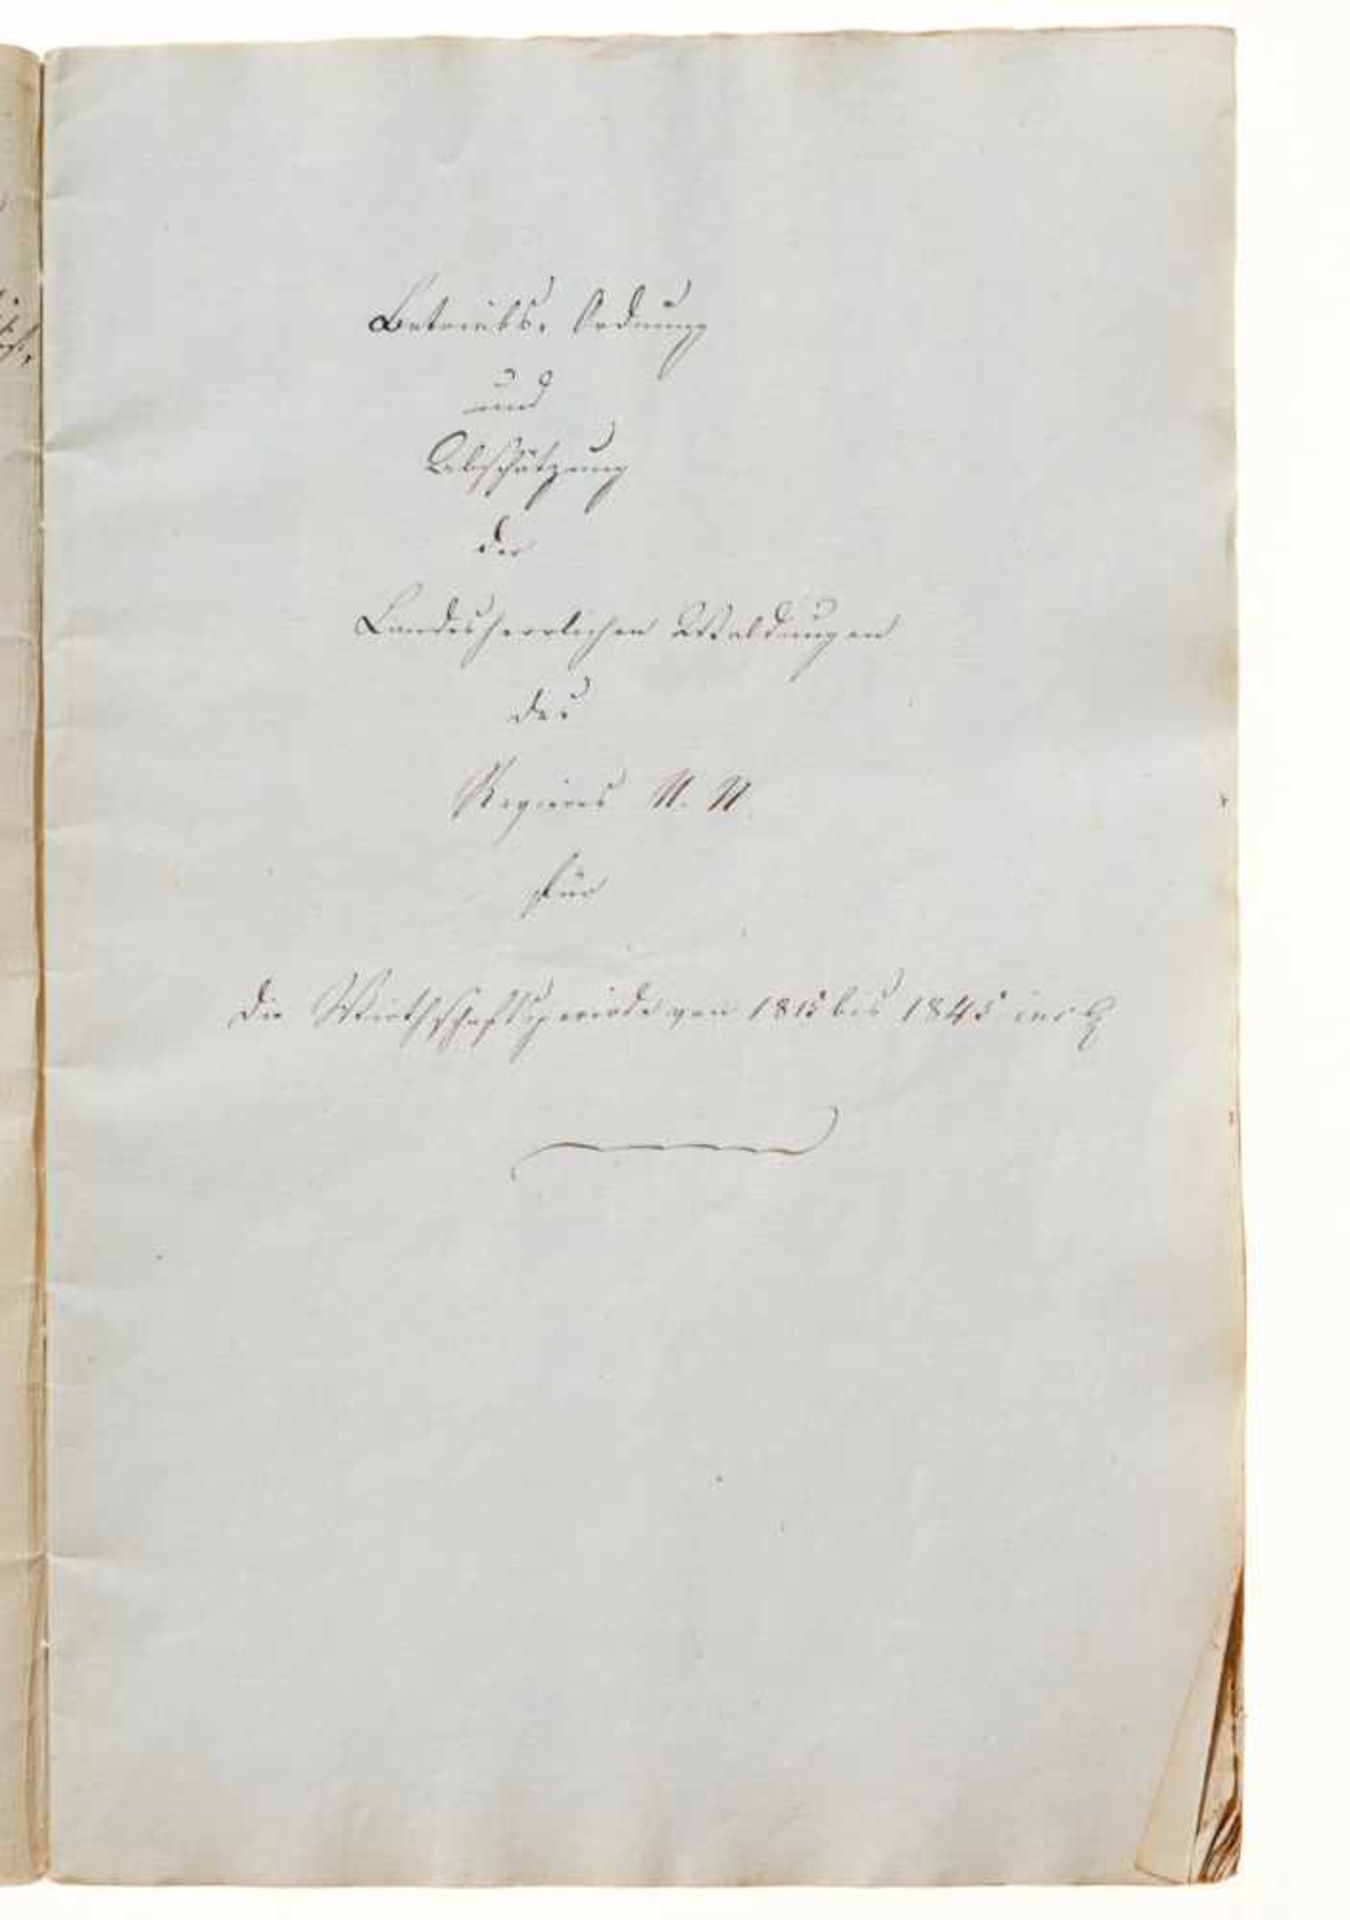 Betriebs-Ordnung
und
Abschätzung
der
Landesherrlichen Waldungen
des
Revieres N. N.
für
die Wirthschaftsperiode von 1815 bis 1845 incl